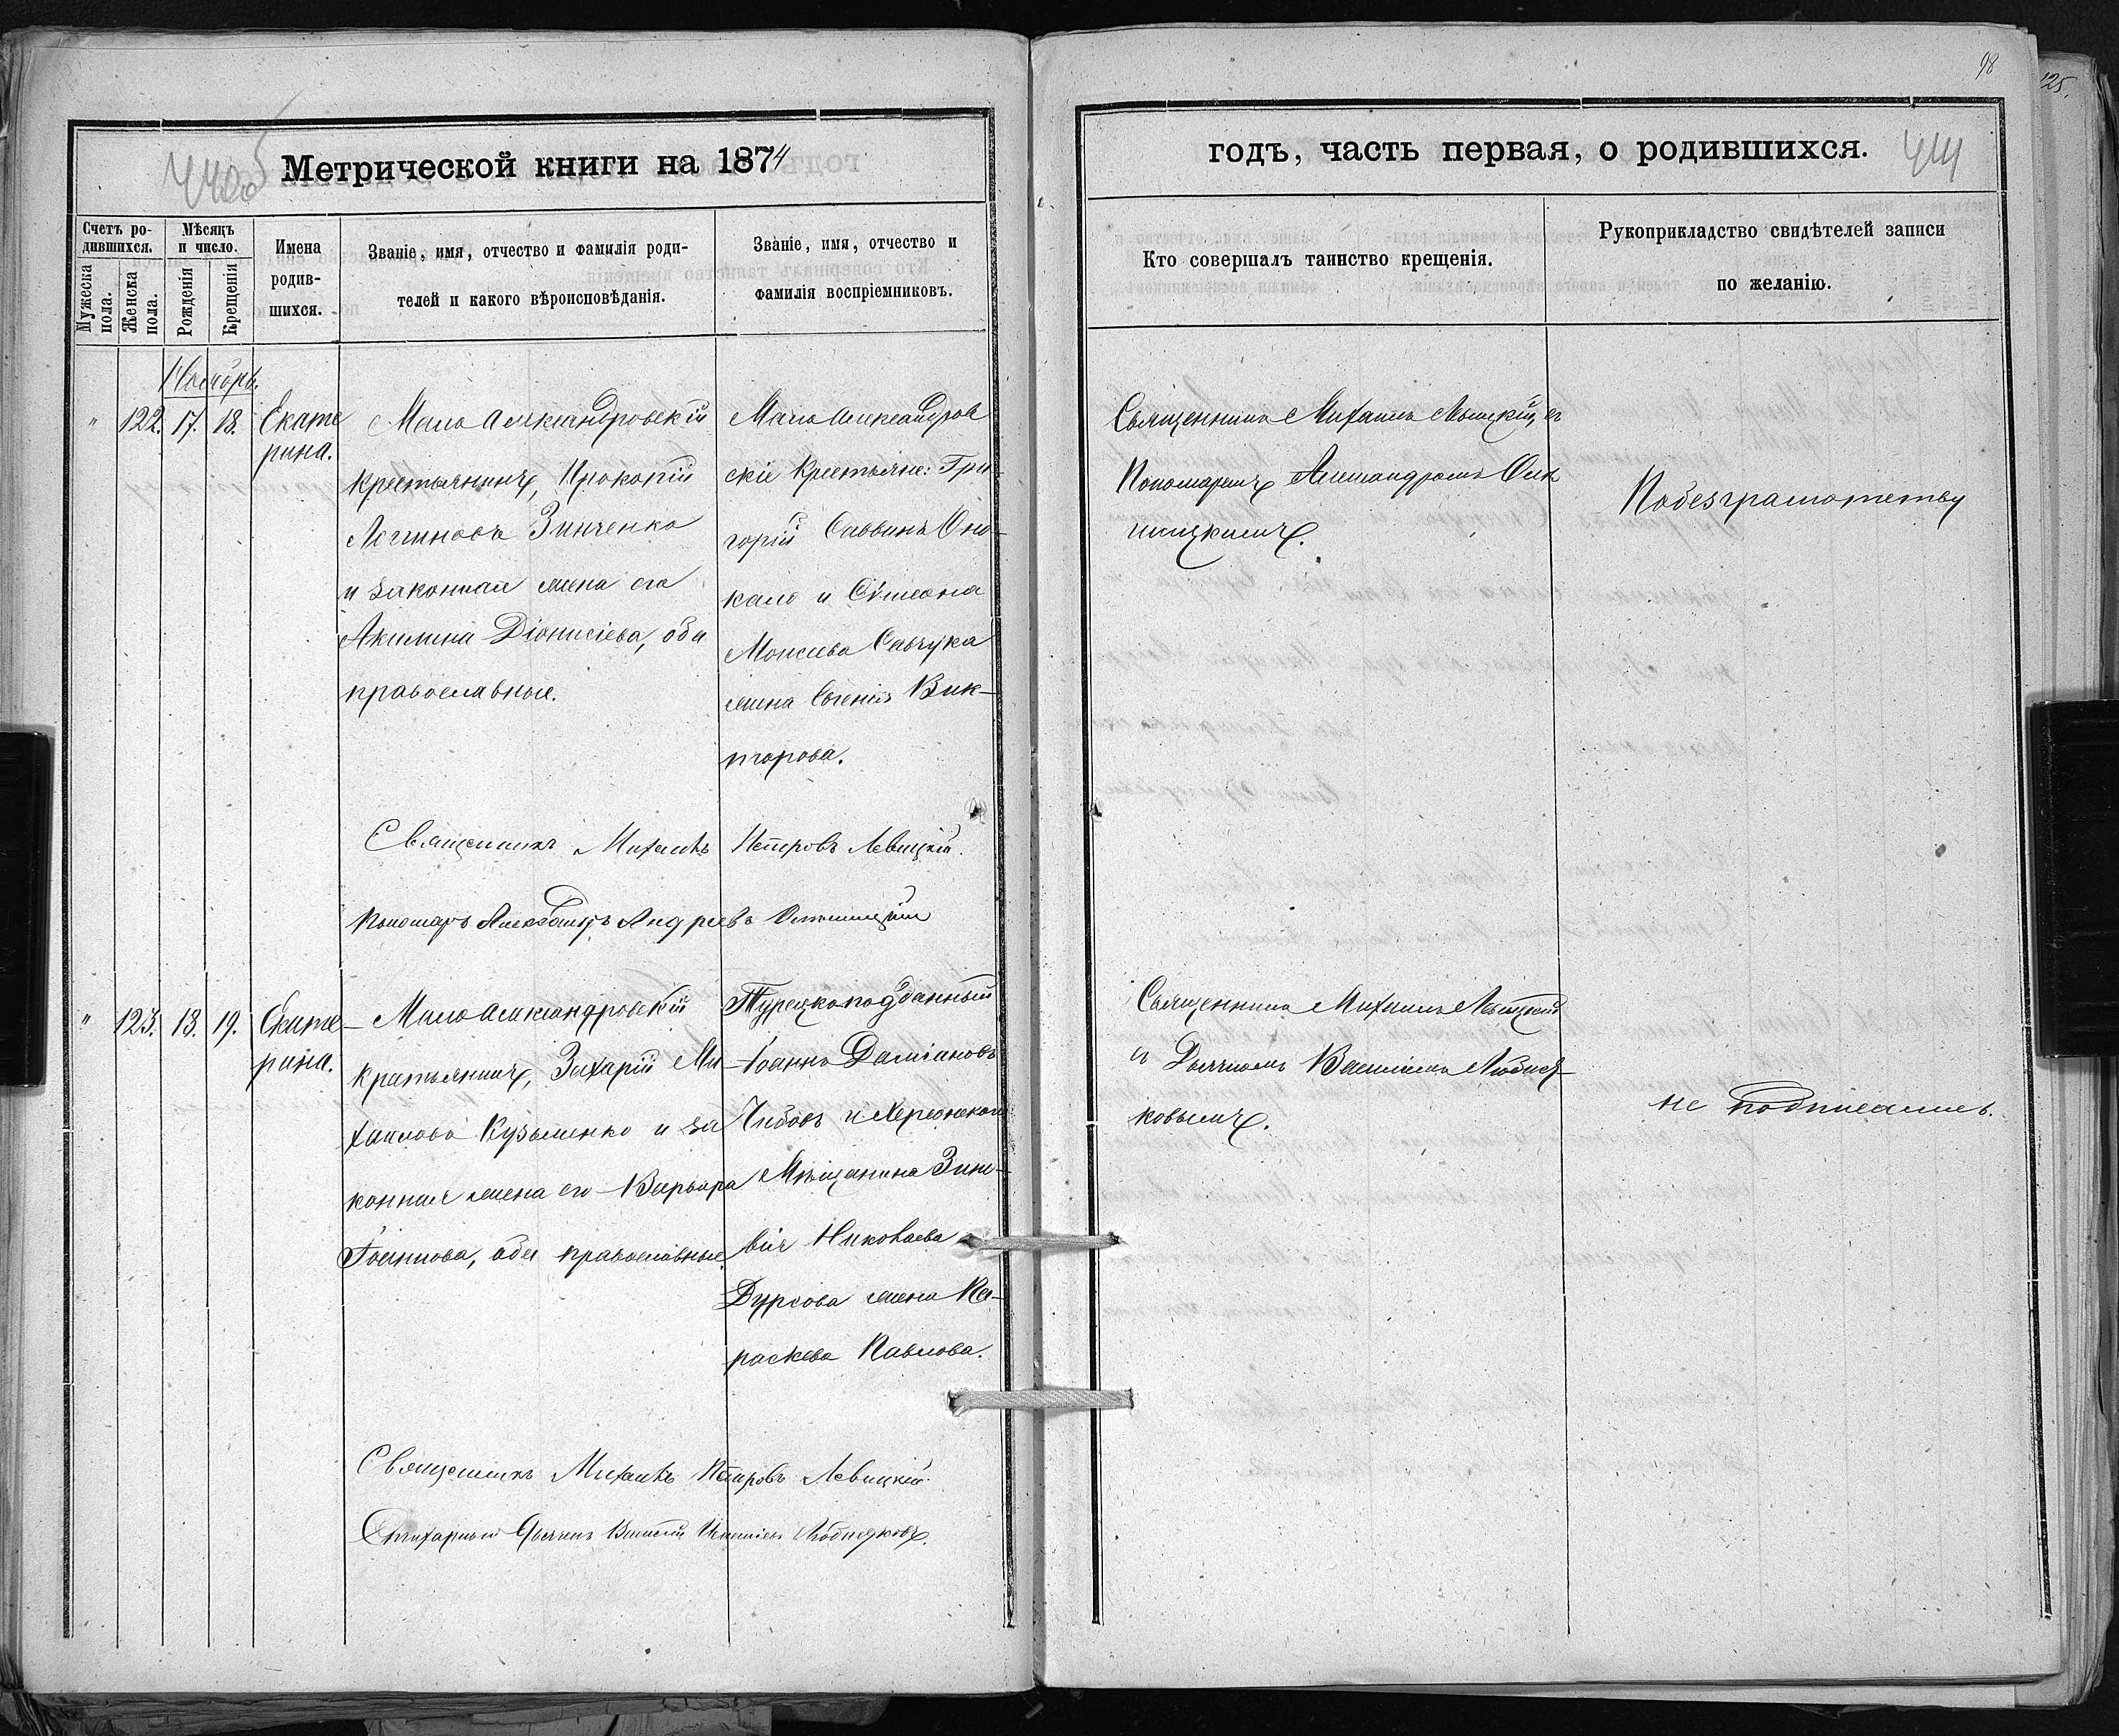 98
125.
Метрической книги на 1874
годъ, часть первая, о родившихся.
Счетъ ро-
дившихся.
Мужеска
пола.
Женска
пола.
Мѣсяцъ
и число.
Рожденія
Крещенія
Имена
родив-
шихся.
Званіе, имя, отчество и фамилія роди-
телей и какого вѣроисповѣданія.
Званіе, имя, отчество и
фамилія воспріемниковъ.
Кто совершалъ таинство крещенія.
Рукоприкладство свидѣтелей записи
по желанію.
Ноябрь.
" 122. 17. 18. Екате
рина.
Мало Александровскій
крестьянинъ, Прокопій
Логиновъ Зинченко
и законная жена его
Акилина Діонисіева, оба
православные.
Мало Александров
скіе крестьяне: Гри-
горій Саввинъ Оно-
кало и Сѵмеона
Моисеева Савчука
жена Евгенія Вик-
торова.
Священникъ Михаилъ Левицкій, съ
Пономаремъ Александромъ
Побезграмотству
Священникъ Михаилъ Петровъ Левицкій.
Пономарь Александръ Андреевъ
" 123. 18. 19. Екате-
рина.
Мало Александровскій
крестьянинъ, Захарій Ми-
хаиловъ Кузьменко и за
конная жена его Варвара
Іоаннова, оба православные.
Турецкоподданный
Іоаннъ Даміановъ
Чибовъ и Херсонскаго
Мѣщанина Зино-
вія Николаева
Дурсова жена Па-
раскева Павлова.
Священникъ Михаилъ Левицкій
съ Дьячкомъ Василіемъ Лобачев-
ковымъ.
не подписались.
Священникъ Михаилъ Петровъ Левицкій.
Стихарный Дьячекъ Василій